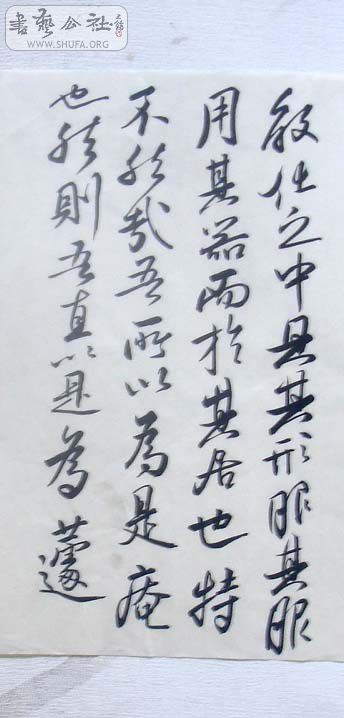 書藝公社
WWW.SHUFA.ORG
之中具其形服其服
用其器而於其居也特
不然哉吾所以為是庵
也然則吾直以是為蘧